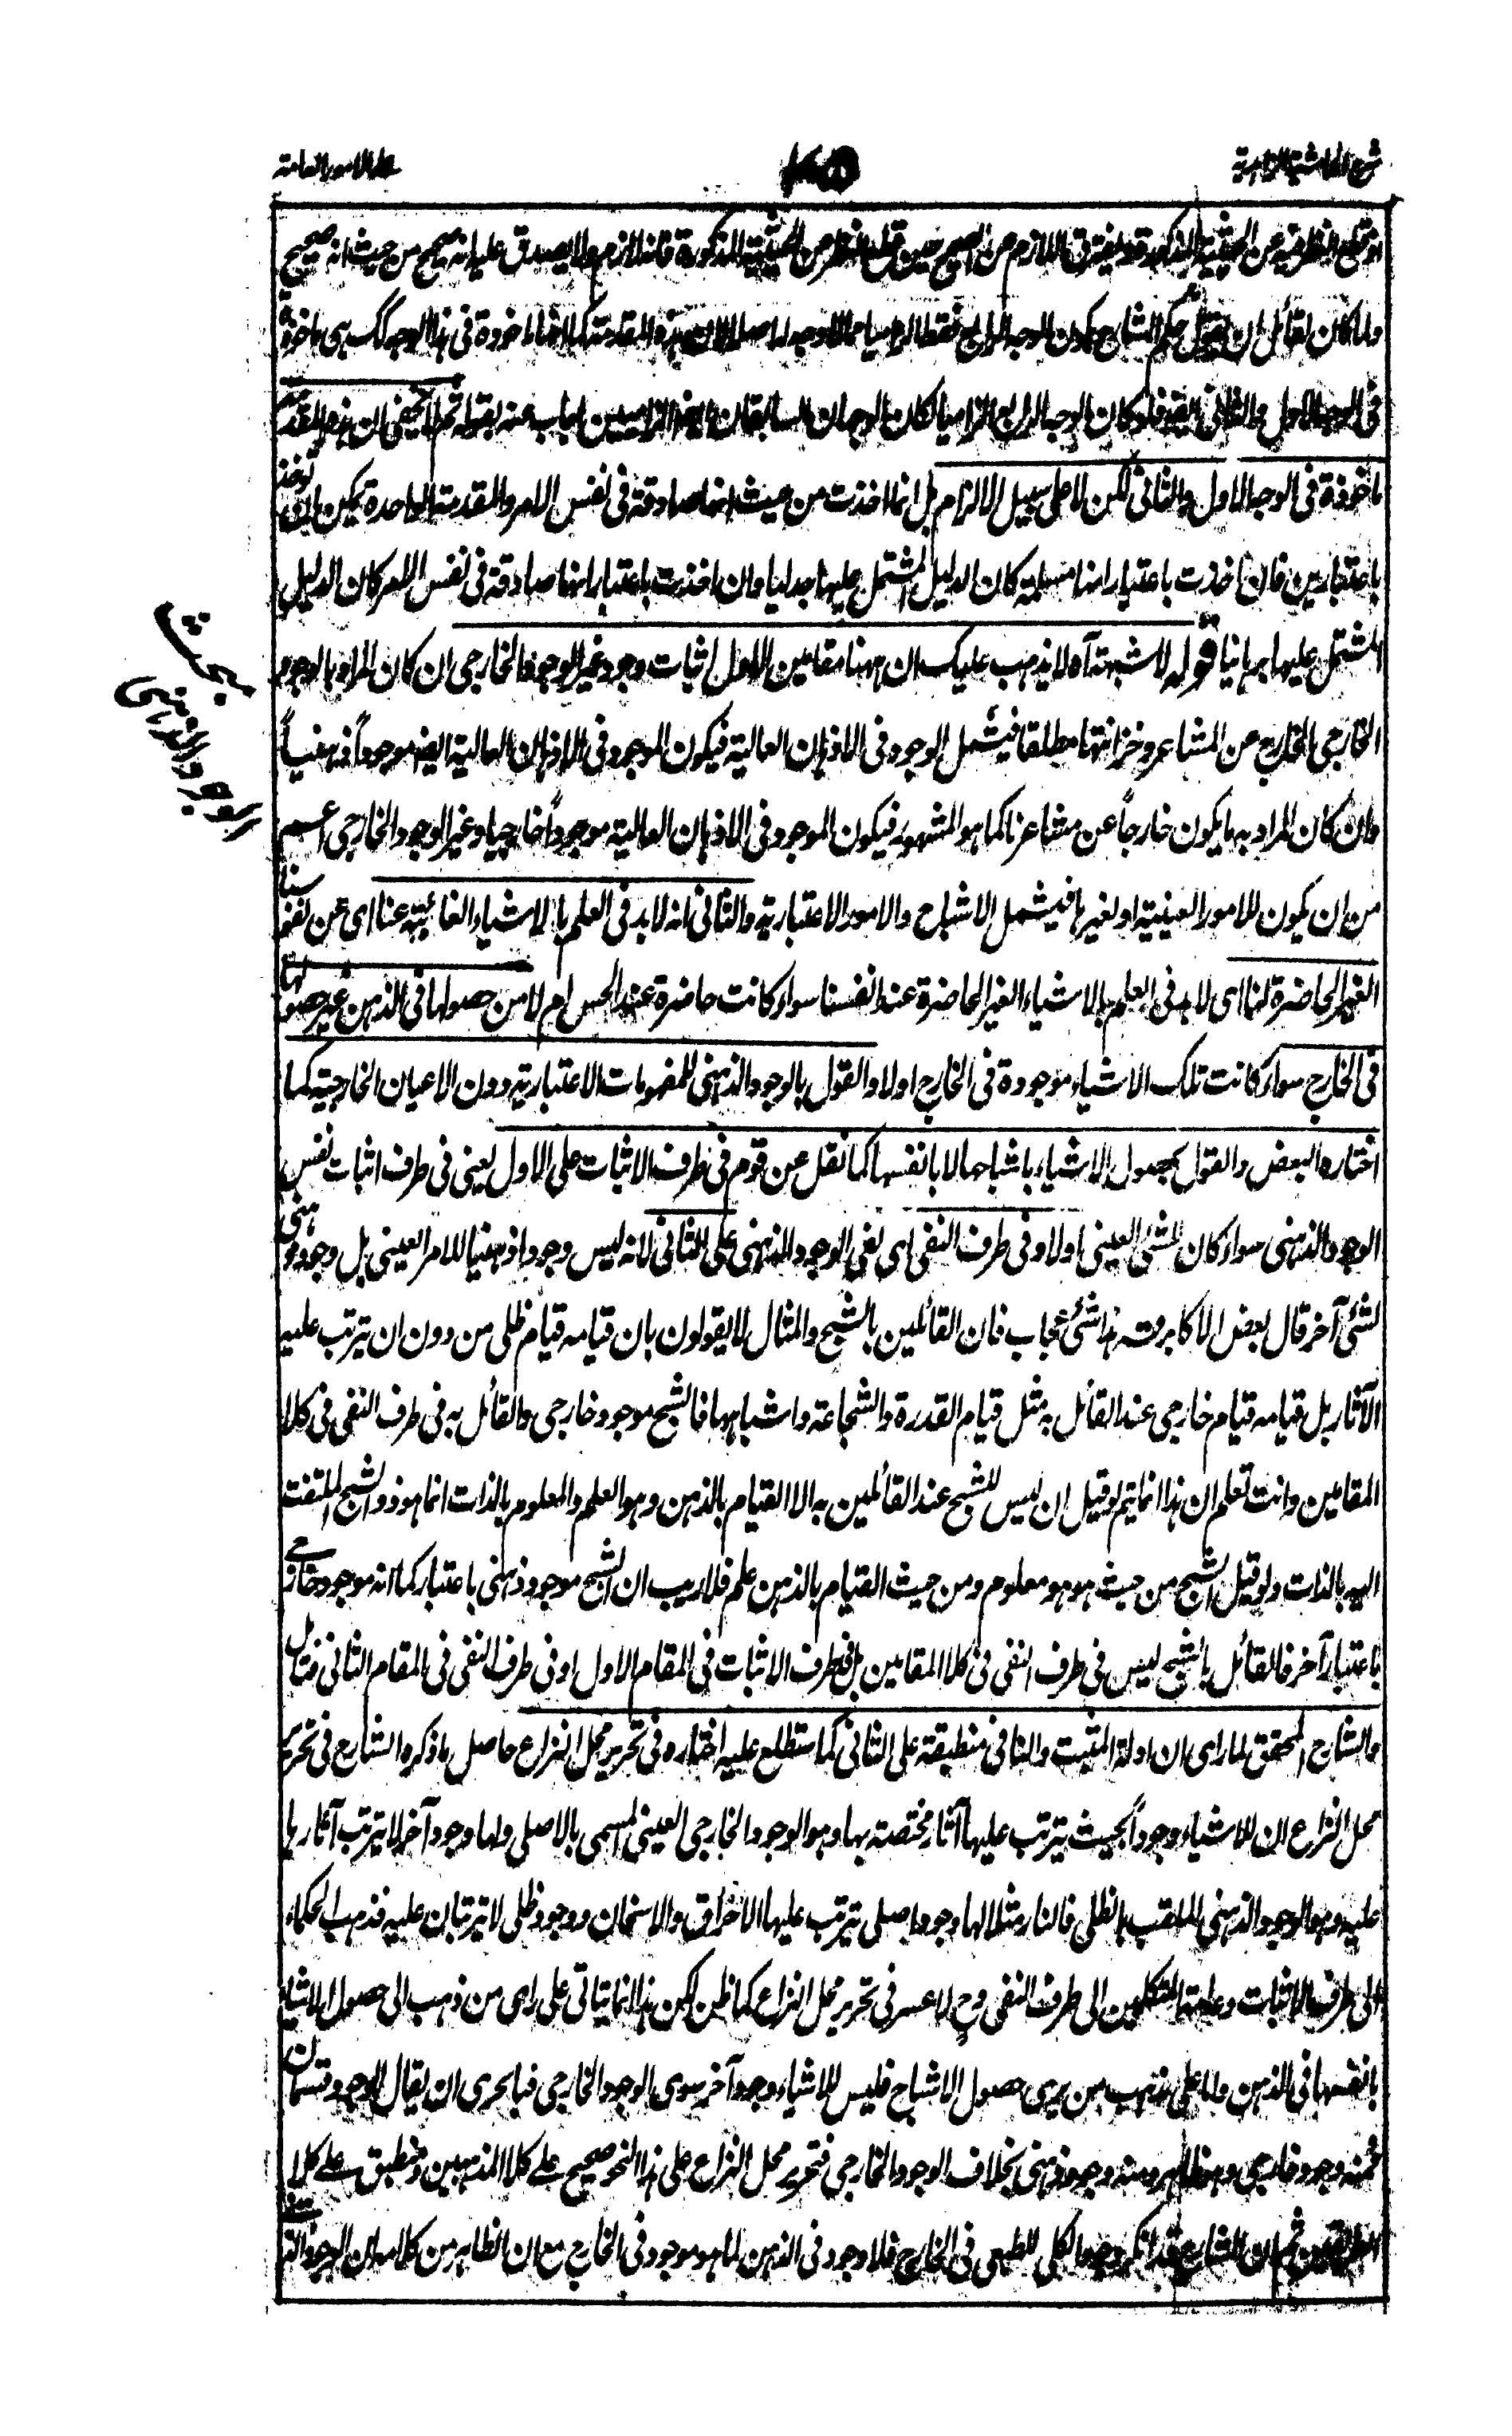 شرح الحاشية الزاهدية
على الامور العامة
او قطع النظر فيه عن الحيثية المذكورة قد يفترق اللازم من الصحيح حين قطع النظر من الحيثية المذكورة فانه لازم ولا يصدق عليه انه صحيح من حيث انه صحيح
ولما كان لقائل ان يقول حكم الشارح بكون الوجه الرابع فقط الزاميا مما لا وجه له اصلا لان هذه المقدمة كما انها ماخوذة في هذا الوجه كك هى ماخوذة
فى الوجه الاول والثانى ايضا فلو كان الوجه الرابع الزاميا لكان الوجهان السابقان ايضا الزاميين اجاب عنه بقوله ثم لا يخفى ان هذه المقدمة
ماخوذة فى الوجه الاول والثانى لكن لا على سبيل الالزام بل انما اخذت من حيث انها صادقة فى نفس الامر والمقدمة الواحدة يمكن ان توخذ
باعتبارين فان اخذت باعتبار انها مسلمة كان الدليل المشتمل عليها جدليا وان اخذت باعتبار انها صادقة فى نفس الامر كان الدليل
المشتمل عليها برهانيا قوله لا شبهة آه لا يذهب عليك ان ههنا مقامين الاول اثبات وجود غير الوجود الخارجى ان كان المراد بالوجود
الخارجى الخارج عن المشاعر وخزانتها مطلقا فيشمل الوجود فى الاذهان العالية فيكون الموجود فى الاذهان العالية ايضا موجوداً ذهنياً
وان كان المراد به ما يكون خارجاً عن مشاعرنا كما هو المشهور فيكون الموجود فى الاذهان العالية موجوداً خارجيا وغير الوجود الخارجى اعم
من ان يكون للامور العينية او لغيرها فيشمل الاشباح والامور الاعتبارية والثانى انه لا بد فى العلم بالاشياء الغائبة عنا اى عن نفوسنا
الغير الحاضرة لنا اى لا بد فى العلم بالاشياء الغير الحاضرة عند انفسنا سواء كانت حاضرة عند الحس ام لا من حصولها فى الذهن غير حصولها
فى الخارج سواء كانت تلك الاشياء موجودة فى الخارج اولا والقول بالوجود الذهنى للمفهومات الاعتبارية دون الاعيان الخارجية كما
اختاره البعض والقول بحصول الاشياء باشباحها لا بانفسها كما نقل عن قوم فى طرف الاثبات على الاول يعنى فى طرف اثبات نفس
الوجود الذهنى سواء كان للشئ العينى اولا وفى طرف النفى اى نفى الوجود الذهنى على الثانى لانه ليس وجودا ذهنيا للامر العينى بل وجود ذهنى
لشئ آخر قال بعض الاكابر قده هذا شئ عجاب فان القائلين بالشبح والمثال لا يقولون بان قيامه قيام ظلى من دون ان يترتب عليه
الآثار بل قيامه قيام خارجى عند القائل به مثل قيام القدرة والشجاعة واشباهها فالشبح موجود خارجى والقائل به فى طرف النفى فى كلا
المقامين وانت تعلم ان هذا انما يتم لو قيل ان ليس للشبح عند القائلين به الا القيام بالذهن وهو العلم والمعلوم بالذات انما هو ذو الشبح الملتفت
اليه بالذات ولو قيل الشبح من حيث هو هو معلوم ومن حيث القيام بالذهن علم فلا ريب ان الشبح موجود ذهنى باعتبار كما انه موجود خارجى
باعتبار آخر فالقائل بالشبح ليس فى طرف النفى فى كلا المقامين بل فى طرف الاثبات فى المقام الاول او فى طرف النفى فى المقام الثانى فتامل
والشارح المحقق لما راى ان ادلة المثبت والنافى منطبقة على الثانى كما ستطلع عليه اختاره فى تحرير محل النزاع حاصل ما ذكره الشارح فى تحرير
محل النزاع ان للاشياء وجوداً بحيث يترتب عليها آثار مختصة بها وهو الوجود الخارجى العينى المسمى بالاصلى ولها وجود آخر لا يترتب آثارها
عليه وهو الوجود الذهنى الملقب بالظلى فالنار مثلا لها وجود اصلى يترتب عليها الاحراق والاسخان ووجود ظلى لا يترتبان عليه فذهب الحكماء
الى طرف الاثبات وعامة المتكلمين الى طرف النفى وح لا عسر فى تحرير محل النزاع كما ظن لكن هذا انما يتاتى على راى من ذهب الى حصول الاشياء
بانفسها فى الذهن واما على مذهب من يرى حصول الاشباح فليس للاشياء وجود آخر سوى الوجود الخارجى فبالحرى ان يقال الوجود قسمان
فمنه وجود خارجى وهو ظاهر ومنه وجود ذهنى بخلاف الوجود الخارجى فتحرير محل النزاع على هذا النحو صحيح على كلا المذهبين ومنطبق على كلا
ثم ان الشارح قد انكر وجود الكلى الطبعى فى الخارج فلا وجود فى الذهن لما هو موجود فى الخارج مع ان الظاهر من كلامه ان الوجود
مبحث
الوجود الذهنى